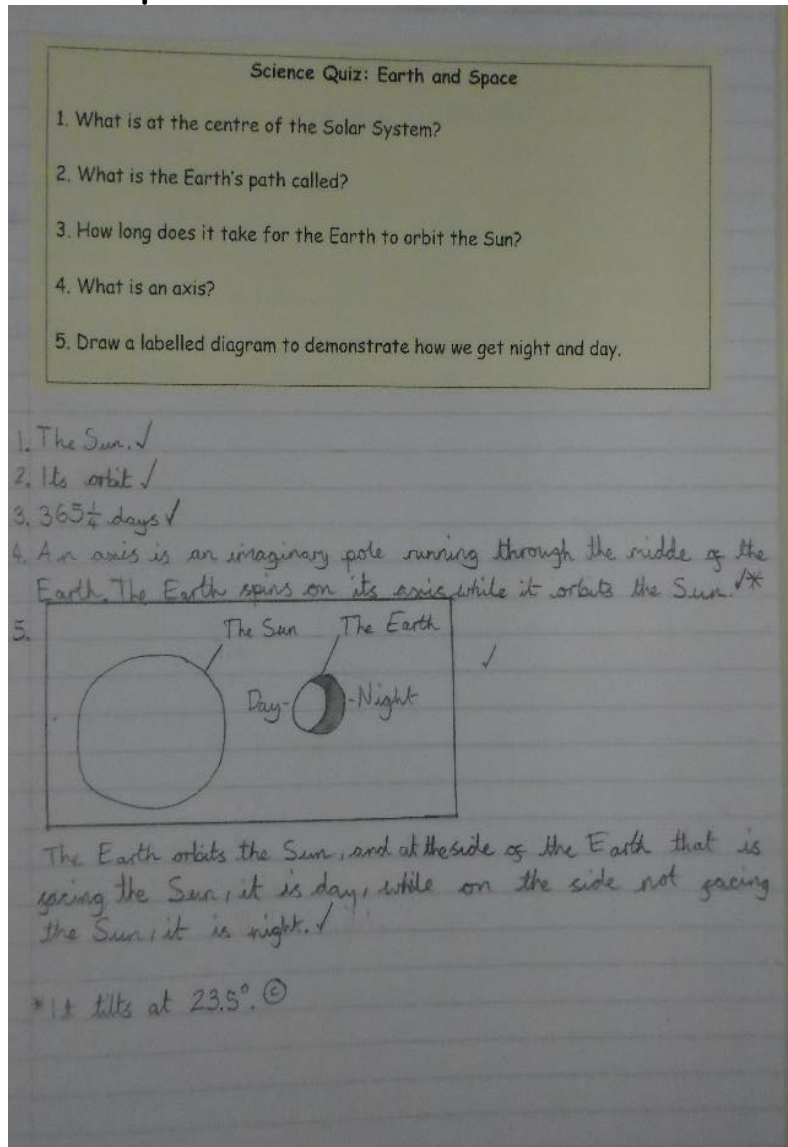 Science Quiz: Earth and Space
1. What is at the centre of the Solar System?
2. What is the Earth's path called?
3. How long does it take for the Earth to orbit the Sun?
4. What is an axis?
5. Draw a labelled diagram to demonstrate how we get night and day.
1. The Sun. ✓
2. Its orbit ✓
3. 365¼ days ✓
4. An axis is an imaginary pole running through the midde of the
Earth. The Earth spins on its axis while it orbits the Sun. ✓*
5.
The Sun The Earth
✓
Day- -Night
The Earth orbits the Sun, and at the side of the Earth that is
facing the Sun, it is day, while on the side not facing
the Sun, it is night. ✓
*It tilts at 23.5°. ©